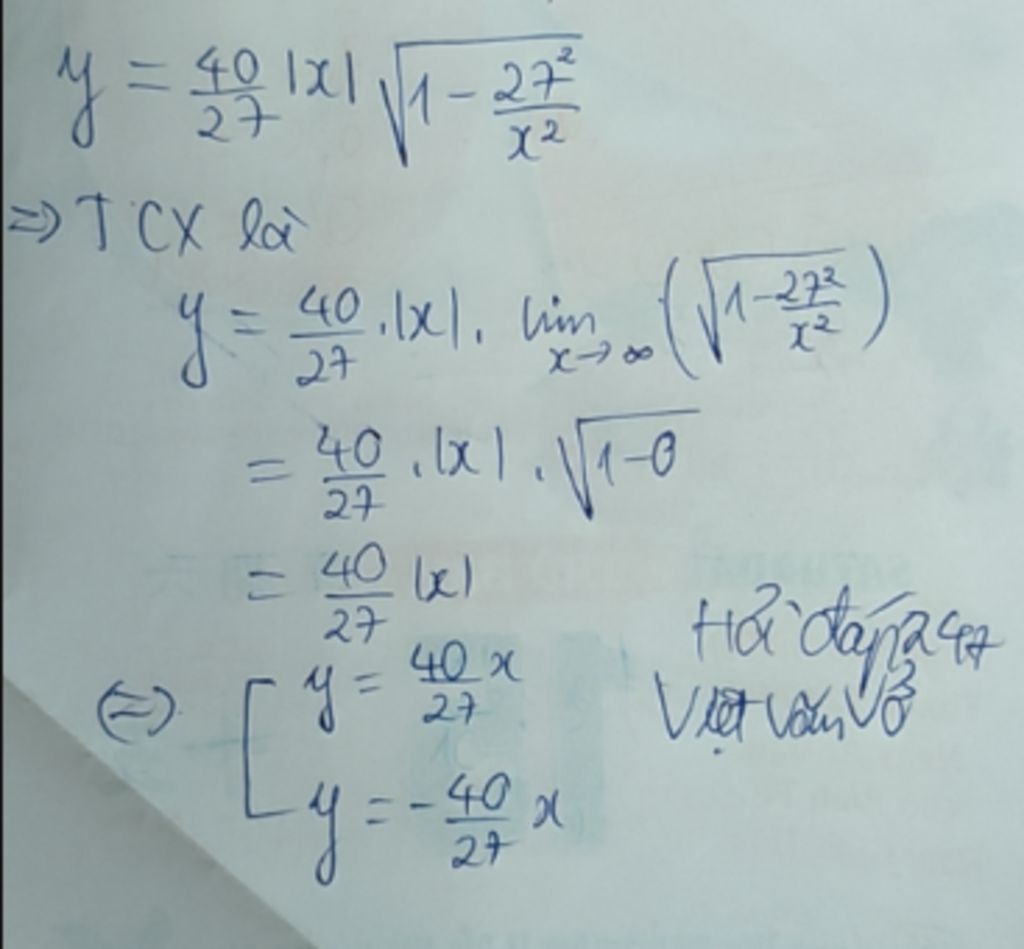 y = 40/27 |x| √(1 - 27²/x²)
=> TCX là
y = 40/27 . |x| . lim x→∞ (√(1 - 27²/x²))
= 40/27 . |x| . √(1-0)
= 40/27 |x|
(=) [ y = 40/27 x
y = - 40/27 x
Hỏi đáp 247
Việt Văn Vở